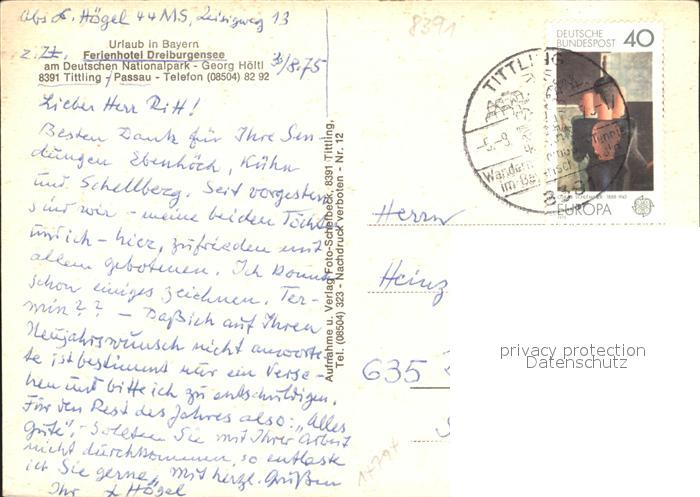 Abs. L. Högel 44 MS, Zeisigweg 13
z. Zt.
Urlaub in Bayern
Ferienhotel Dreiburgensee
am Deutschen Nationalpark - Georg Höltl
8391 Tittling - Passau - Telefon (08504) 82 92
3/8.75
Lieber Herr Ritt!
Besten Dank für Ihre Sen-
dungen Ebenhöch, Kühn
und Schellberg. Seit vorgestern
sind wir - meine beiden Töchter
und ich - hier, zufrieden mit
allem gebotenen. Ich konnte
schon einiges zeichnen. Ter-
min?? - Daß ich auf Ihren
Neujahrswunsch nicht antworte-
te ist bestimmt nur ein Verse-
hen und bitte ich zu entschuldigen.
Für den Rest des Jahres also: "Alles
Gute". - Sollten Sie mit Ihrer Arbeit
nicht durchkommen, so entlaste
ich Sie gerne, mit herzl. Grüßen
Ihr L Högel
Aufnahme u. Verlag Foto-Schefbeck, 8391 Tittling,
Tel. (08504) 323 - Nachdruck verboten - Nr. 12
8391
DEUTSCHE
BUNDESPOST 40
EUROPA
TITTLING
839
Herrn
Heinz
635
privacy protection
Datenschutz